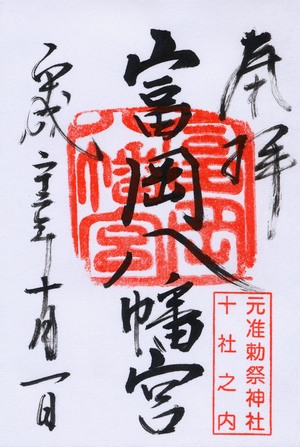 奉拝
富岡八幡宮
富岡八幡宮
元准勅祭神社
十社之内
平成二十三年十月一日